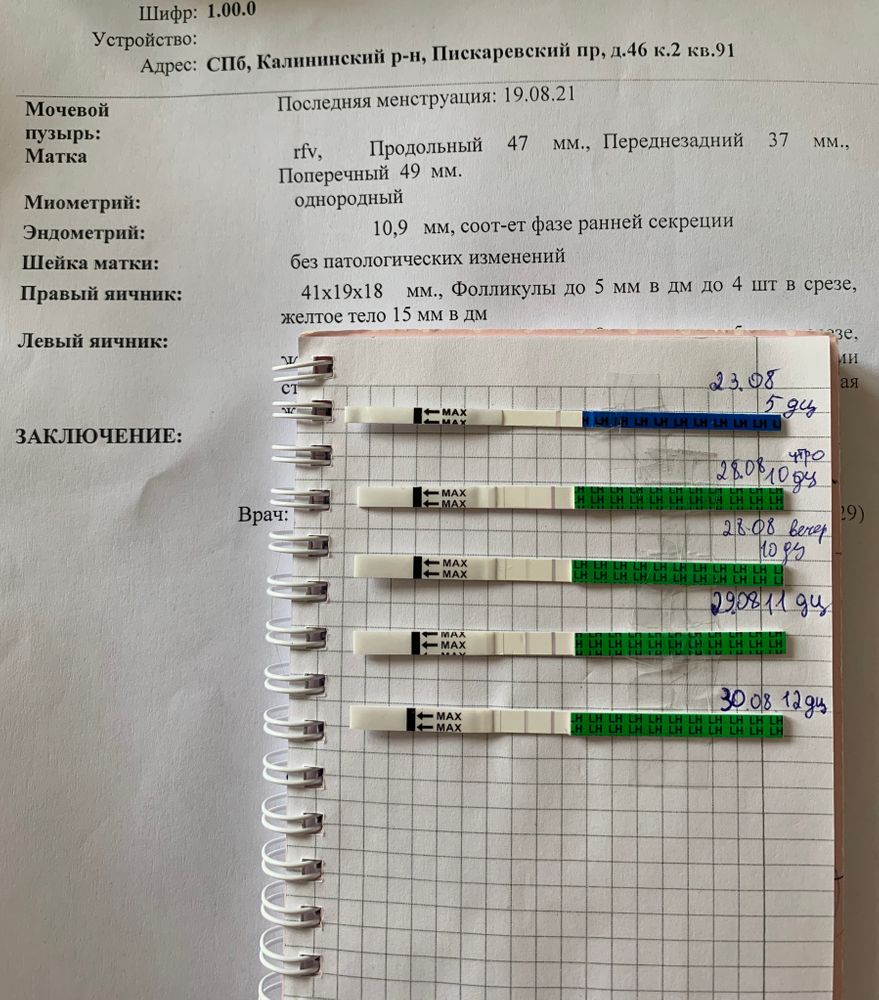 Шифр: 1.00.0
Устройство:
Адрес: СПб, Калининский р-н, Пискаревский пр, д.46 к.2 кв.91
Мочевой пузырь:
Последняя менструация: 19.08.21
Матка rfv, Продольный 47 мм., Переднезадний 37 мм.,
Поперечный 49 мм.
Миометрий: однородный
Эндометрий: 10,9 мм, соот-ет фазе ранней секреции
Шейка матки: без патологических изменений
Правый яичник: 41х19х18 мм., Фолликулы до 5 мм в дм до 4 шт в срезе,
желтое тело 15 мм в дм
Левый яичник:
ЗАКЛЮЧЕНИЕ:
Врач:
29)
23.08
5 дц
MAX
MAX
LH LH LH LH LH LH LH LH LH
утро
28.08 10 дц
MAX
MAX
LH LH LH LH LH LH LH LH LH LH
LH LH LH LH LH LH LH LH LH LH
28.08 вечер
10 дц
MAX
MAX
LH LH LH LH LH LH LH LH LH LH
LH LH LH LH LH LH LH LH LH LH
29.08 11 дц
MAX
MAX
MAX
LH LH LH LH LH LH LH LH LH LH
30.08 12 дц
MAX
MAX
LH LH LH LH LH LH LH LH LH LH
LH LH LH LH LH LH LH LH LH LH